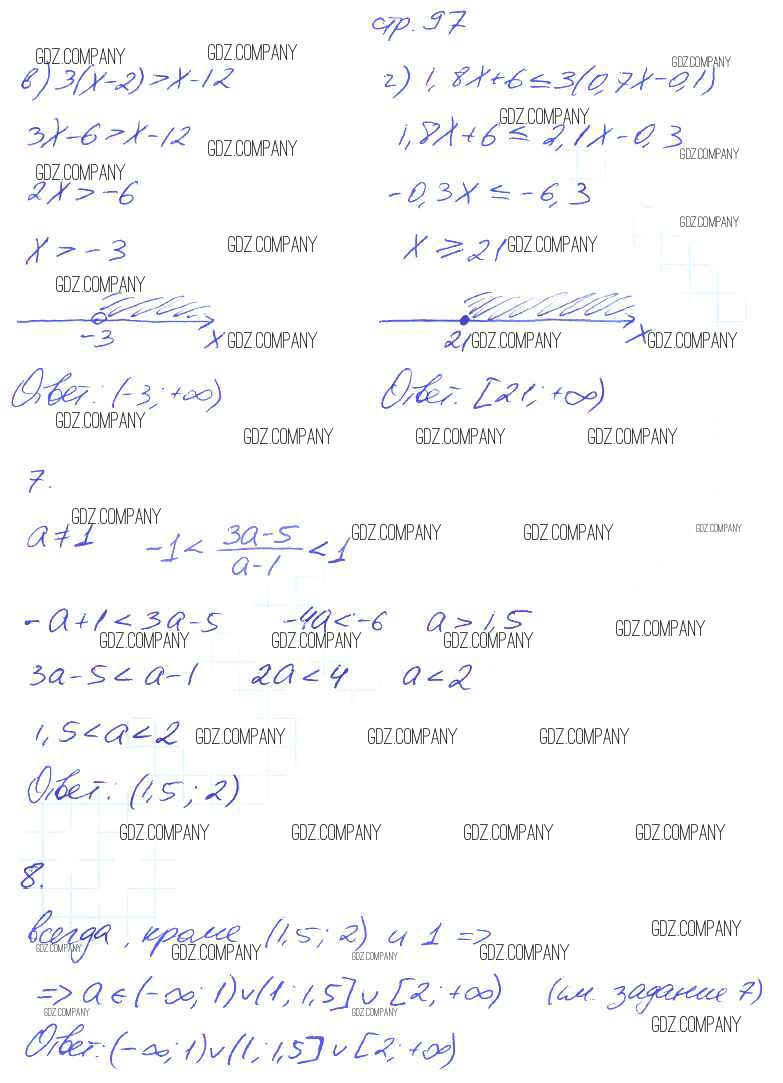 стр. 97
GDZ.COMPANY GDZ.COMPANY GDZ.COMPANY
в) 3(x-2)>x-12
г) 1,8x+6≤3(0,7x-0,1)
GDZ.COMPANY
3x-6>x-12 GDZ.COMPANY
1,8x+6≤2,1x-0,3
GDZ.COMPANY
GDZ.COMPANY
2x>-6
-0,3x≤-6,3
GDZ.COMPANY
x>-3 GDZ.COMPANY
x≥21 GDZ.COMPANY
GDZ.COMPANY
-3 x GDZ.COMPANY
21 GDZ.COMPANY x GDZ.COMPANY
Ответ: (-3; +∞)
Ответ: [21; +∞)
GDZ.COMPANY
GDZ.COMPANY GDZ.COMPANY GDZ.COMPANY
7.
GDZ.COMPANY
a≠1 -1 < (3a-5)/(a-1) < 1 GDZ.COMPANY GDZ.COMPANY GDZ.COMPANY
-a+1<3a-5 -4a<-6 a>1,5
GDZ.COMPANY GDZ.COMPANY GDZ.COMPANY GDZ.COMPANY
3a-5<a-1 2a<4 a<2
1,5<a<2 GDZ.COMPANY GDZ.COMPANY GDZ.COMPANY
Ответ: (1,5; 2)
GDZ.COMPANY GDZ.COMPANY GDZ.COMPANY GDZ.COMPANY
8.
всегда, кроме (1,5; 2) и 1 =>
GDZ.COMPANY
GDZ.COMPANY GDZ.COMPANY GDZ.COMPANY GDZ.COMPANY
=> a∈(-∞; 1)∪(1; 1,5]∪[2; +∞) (см. задание 7)
GDZ.COMPANY GDZ.COMPANY GDZ.COMPANY
Ответ: (-∞; 1)∪(1; 1,5]∪[2; +∞)